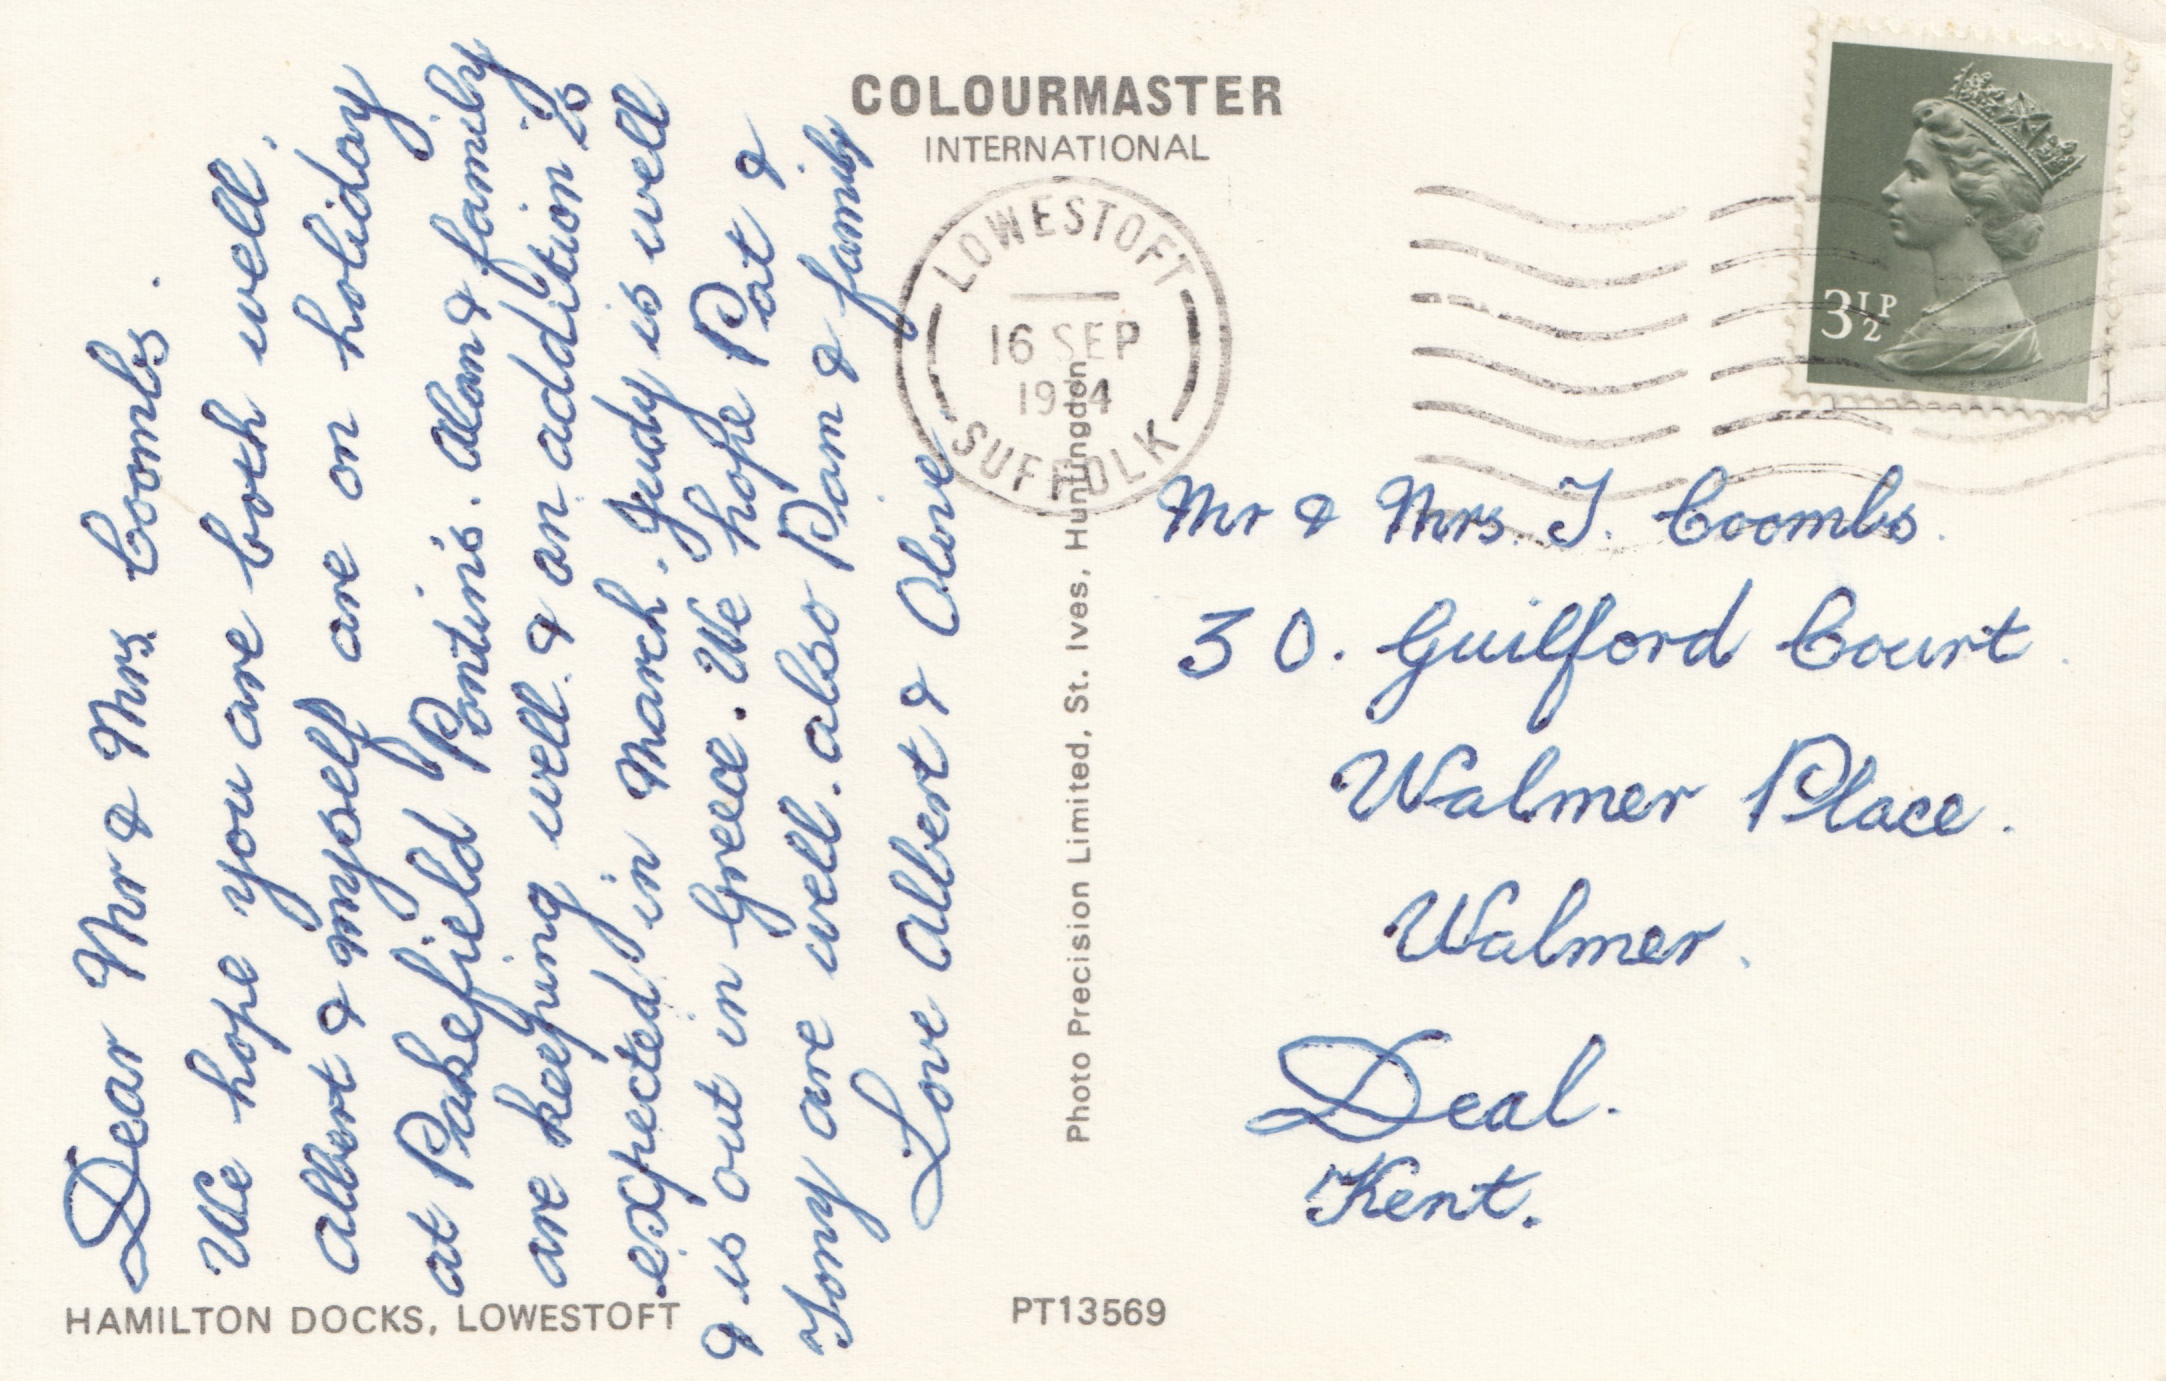 COLOURMASTER
INTERNATIONAL
LOWESTOFT
16 SEP
1974
SUFFOLK
3½P
Dear Mr & Mrs. Coombs.
We hope you are both well.
Albert & myself are on holiday
at Pakefield Pontins. Alan & family
are keeping well. & an addition is
expected in March. Judy is well
& is out in Greece. We hope Pat &
Tony are well. also Pam & family
Love Albert & Olive
Mr & Mrs. J. Coombs.
30. Guilford Court.
Walmer Place.
Walmer.
Deal.
Kent.
Photo Precision Limited, St. Ives, Huntingdon
HAMILTON DOCKS, LOWESTOFT
PT13569